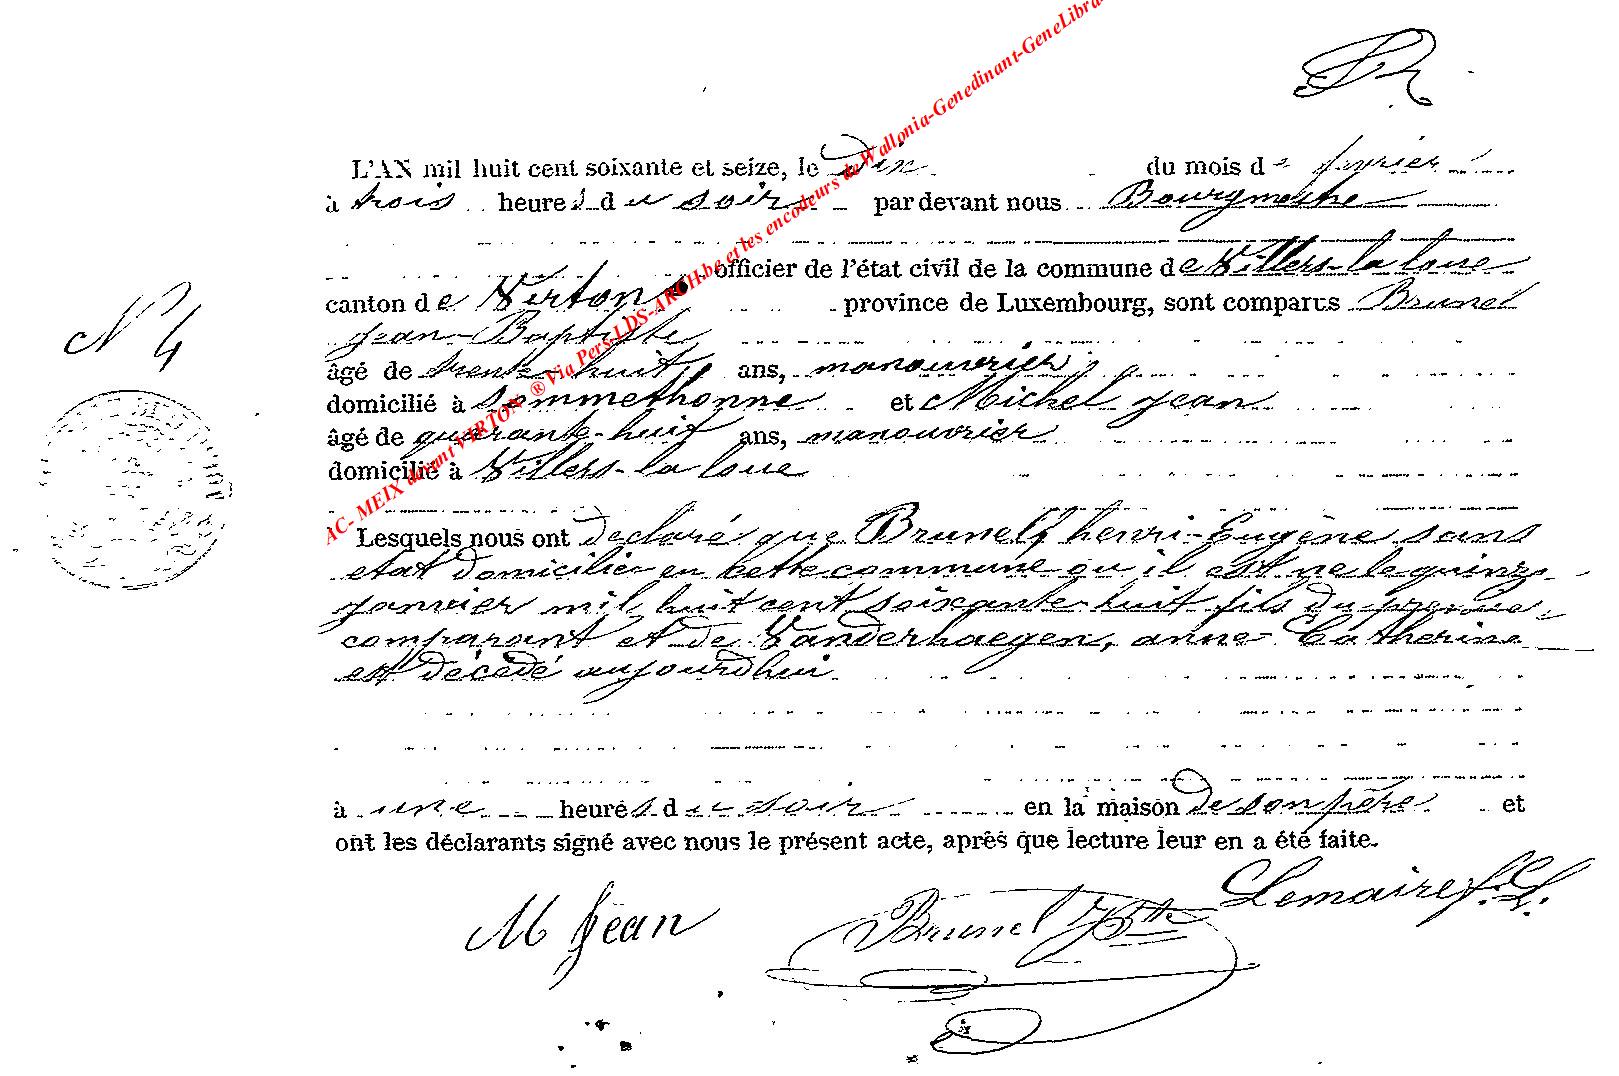 L'AN mil huit cent soixante et seize, le Dix du mois de fevrier
à trois heures du soir par devant nous Bourgmestre
officier de l'état civil de la commune de Villers-la loue
canton de Virton province de Luxembourg, sont comparus Brunel
Jean-Baptiste
âgé de trente-huit ans, manouvrier
domicilié à Sommethonne et Michel Jean
âgé de quarante-huit ans, manouvrier
domicilié à Villers-la loue
Lesquels nous ont declaré que Brunel, henri-Eugène sans
etat domicilié en cette commune ou il est né le quinze
janvier mil huit cent soixante-huit fils du premier
comparant et de Vanderhaegen, anne Catherine
est décédé aujourdhui
à une heures du soir en la maison de son père et
ont les déclarants signé avec nous le présent acte, après que lecture leur en a été faite.
M Jean Brunel JBte Lemaire
N 4
AC- MEIX devant VIRTON ® Via Pers-LDS-ARCH.be et les encodeurs de Wallonia-Genedinant-GeneLibra